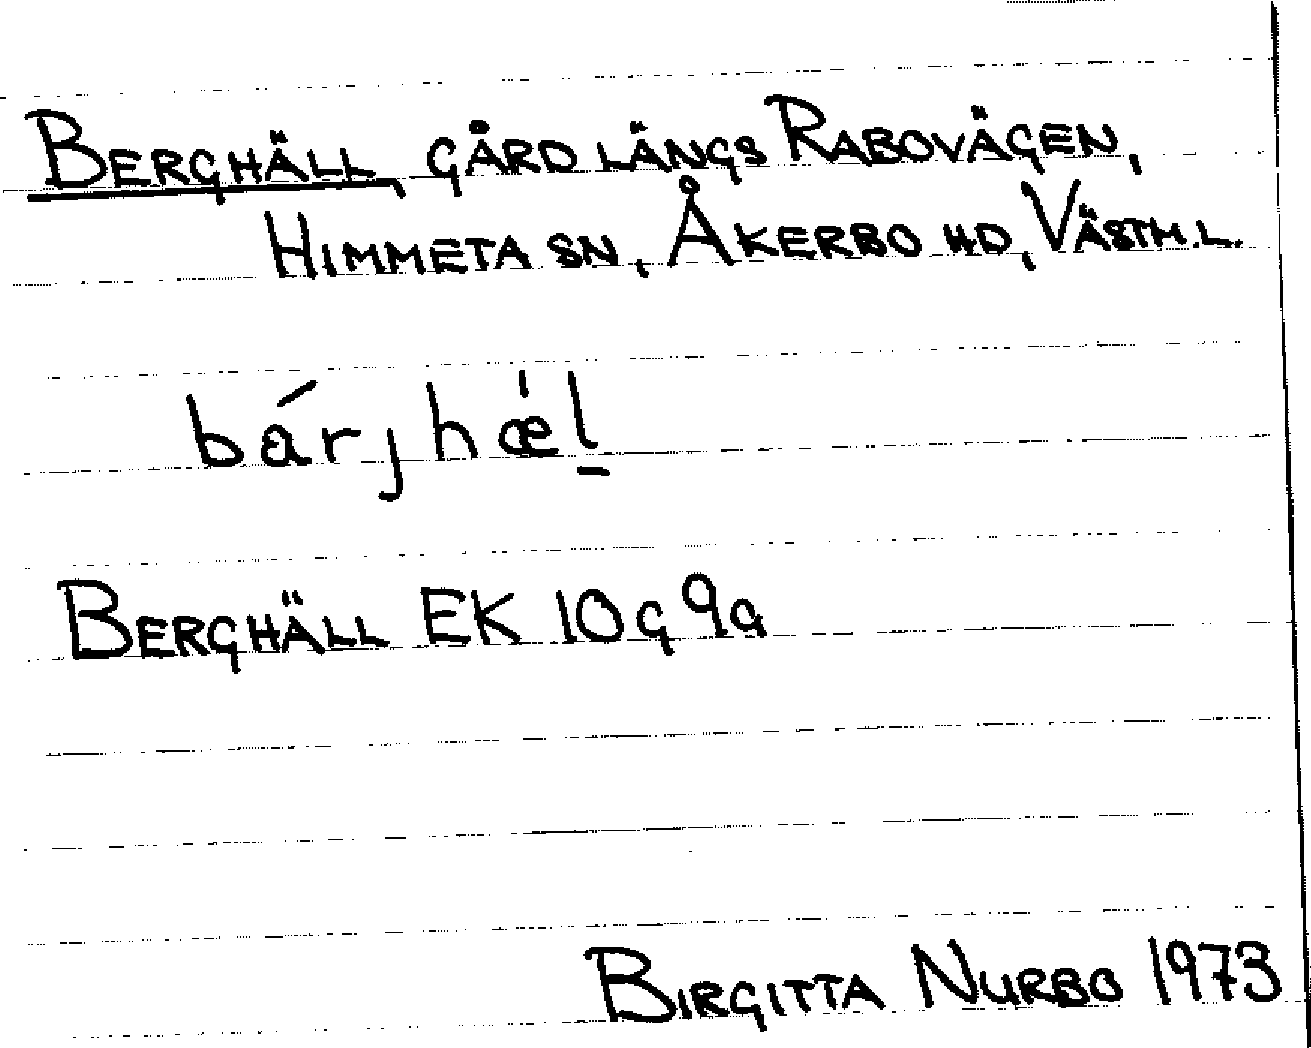 BERGHÄLL, GÅRD LÄNGS RABOVÄGEN,
HIMMETA SN, ÅKERBO HD, VÄSTM.L.
bárjhæ̍l̠
BERGHÄLL EK 10G 9a
BIRGITTA NURBO 1973